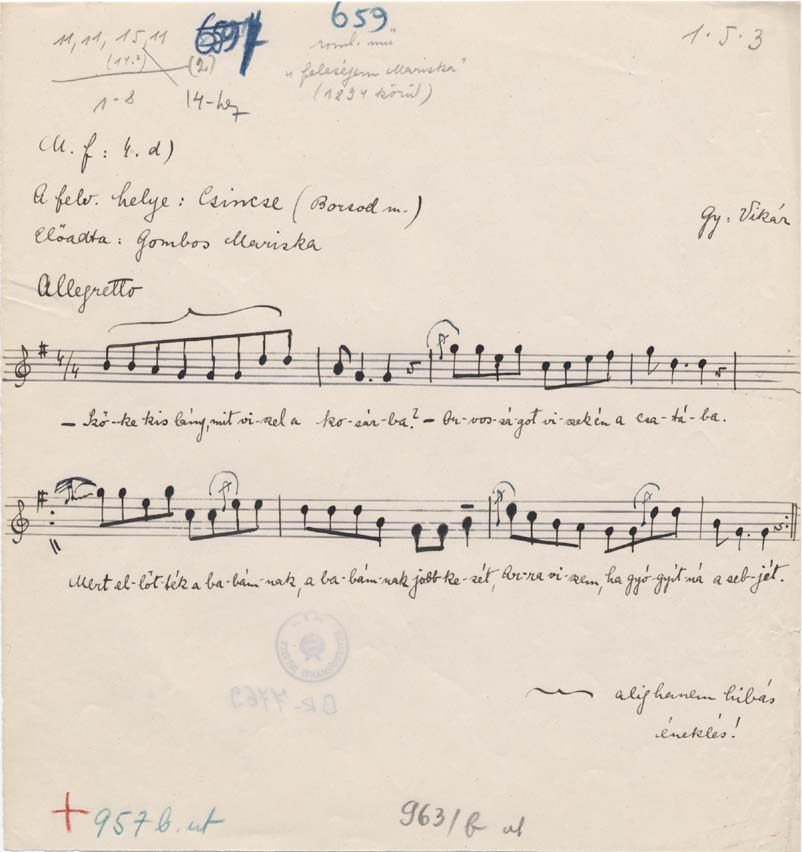 11, 11, 15, 11
(14?)
(2)
1-8
14-hez
659
659
roml. mű
"feleségem Mariska"
(1894 körül)
1.5.3
M. f: 4. d)
A felv. helye: Csincse (Borsod m.)
Gy: Vikár
Előadta: Gombos Mariska
Allegretto
4/4
– Ször-ke kis lány, mit vi-szel a ko-sár-ba? – Or-vos-sá-got vi-szek én a csa-tá-ba.
Mert el-lőt-ték a ba-bám-nak, a ba-bám-nak jobb ke-zét, Ar-ra vi-szem, ha gyó-gyít-ná a seb-jét.
BR-7763
alighanem hibás
éneklés!
+ 957 b. ut
963/b ut